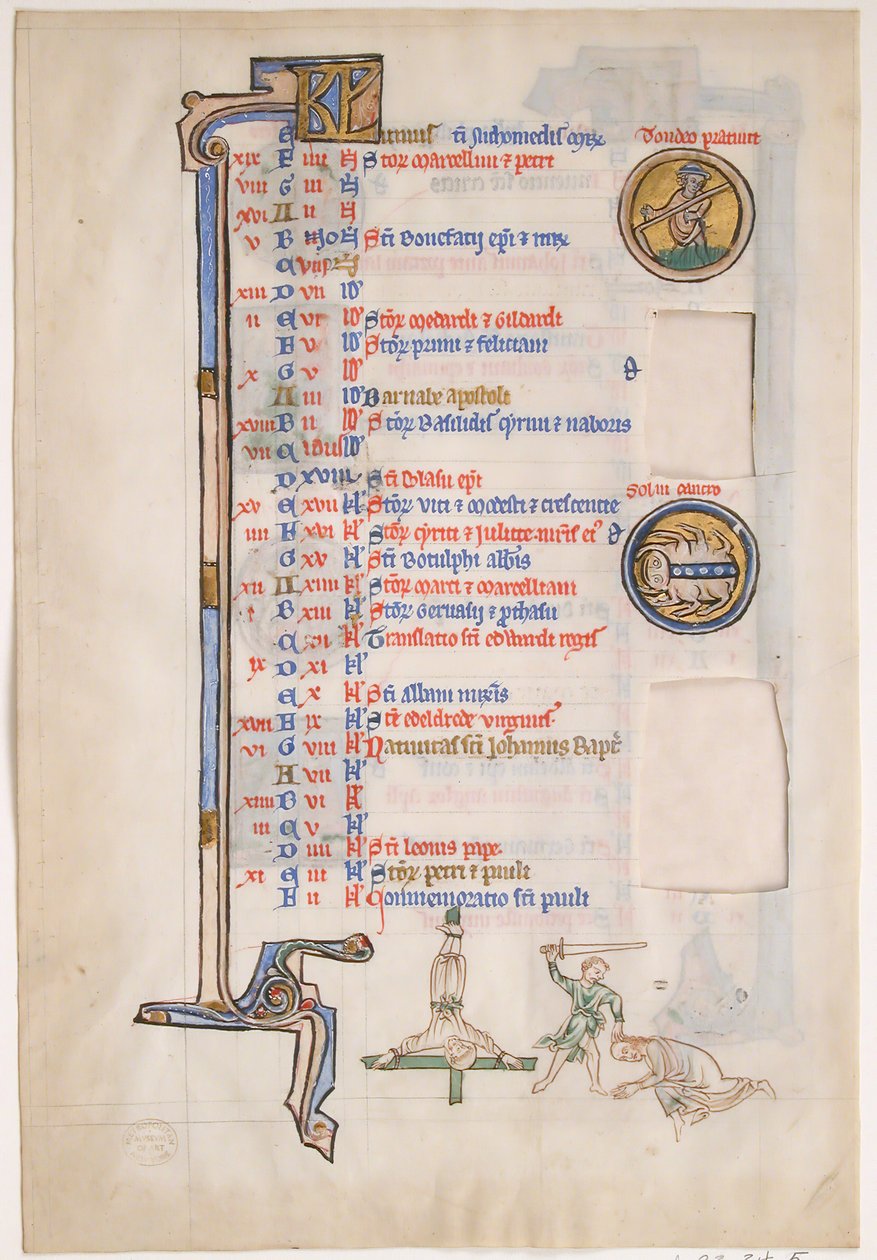 KL Junius e Sci Nichomedis mrꝝ Tondeo pratum
xix F iiii N Stoꝝ marcellini ⁊ petri
viii G iii N
xvi A ii N
v B NON Sci Bonefatii epi ⁊ mrꝝ
C viii
xiii D vii ID
ii E vi ID Stoꝝ medardi ⁊ Gildardi
F v ID Stoꝝ primi ⁊ feliciani
x G ID
A iii ID Barnabe apostoli
xviii B ii ID Stoꝝ Basilidis cyrini ⁊ naboris
vii C idus
D xviii Sci Blasii epi
Sol in cancro
xv E xvii kl Stoꝝ viti ⁊ modesti ⁊ crescentie
iiii F xvi kl Stoꝝ cyrici ⁊ Julitte
G xv kl Sci Botulphi abbis
xii A xiiii kl Stoꝝ marci ⁊ marcelliani
i B xiii kl Stoꝝ Geruasii ⁊ prothasii
C kl Translatio sci edwardi regis
ix D xi kl
E x kl Sci Albani
xvii F ix kl Sce edeldrede virginis
vi G viii kl Natiuitas sci Johannis Bapt
A vii kl
xiiii B vi kl
iii C v kl
D iiii kl Sci leonis pape
xi E iii kl Stoꝝ petri ⁊ pauli
F ii kl Commemoratio sci pauli
METROPOLITAN MUSEUM OF ART